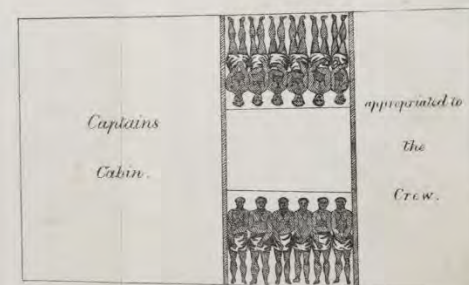 Captains
Cabin.
appropriated to
the
Crew.